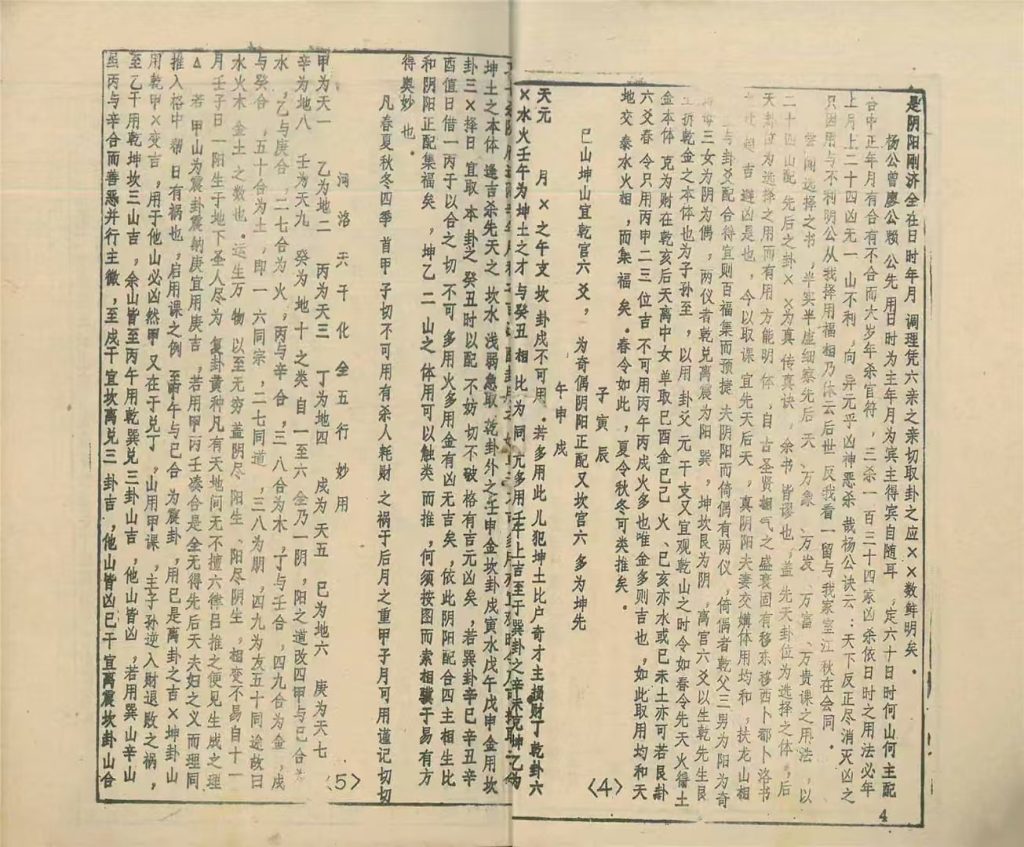 是阴阳刚济全在日时年月 调理凭六亲之亲切取卦之应××数鲜明矣.
杨公曾廖公赖 公先 用日时为主年月为宾主得宾自随耳 ,定六十日时何山何主配
合中正年月有合有不合而太岁年杀官符,三杀一百三十四家凶杀依日时之用法必年
上月上二十四凶无一山不利 ,向 异元乎凶神恶杀 哉杨公诀云:天下反正尽消灭凶之
只因用与不利明公从我择用福相乃休云后世 反我看一留与我家室江秋在会同 .
尝闻选择之书, 半实半虚细察先后天 ,万象 、万发 、万富 、万贵课之用法,以
二十四山配 先后之卦××为真传真诀 ,余书 皆谬也,盖先天卦位为选择之体,后
天卦位为选择之用而有用方能明 体 ,自古圣贤 气之盛衰固有移东移西卜都卜洛书
趋吉避凶是也 ,今以取课宜先天后天 ,真阴阳夫妻交媾体用均和 ,扶龙山相
与卦爻配合得宜则百福集而预捷 夫阴阳而倚偶有两仪 ,倚偶者乾父三男为阳为奇
三女为阴为偶 ,两仪者乾兑离震为阳 巽,坤坎艮为阴 ,离宫六爻以生乾先生艮
乾金之本体也为子孙至 ,以用卦爻元干支又宜观乾山之时令如春令先天火 土
金本体 克为财在乾亥后天离中女单取巳酉金巳己火、巳亥亦水或巳未土亦可若艮卦
六爻春令只用丙申二三位吉不可用丙午丙戌火多也唯金多则吉也,如此取用均和天
地交泰水火相,而集福矣.春令如此,夏令秋冬可类推矣.
子寅辰
巳山坤山宜乾宫六爻, 为奇偶阴阳正配又坎宫六多为坤先
午申戌
天元 月×之午支坎卦戌不可用 .若多用此儿犯坤土比户奇才主损财丁乾卦六
×水火壬午为坤土之才与癸丑相比为同元多用壬年上吉至于巽卦之辛未克坤乙为
〈4〉
4
坤土之本体 逢吉杀先天之 坎水 浅弱急取 乾卦外之壬申金坎卦戊寅水戊午戊申金用坎
卦三×择日宜取 本卦之 癸丑时以配 不妨切不破格有吉元凶矣,若巽卦辛巳辛丑辛
酉值日借一丙于以合之切不可多用火多用金有凶无吉矣,依此阴阳配合四主相生比
和阴阳正配集福矣 ,坤乙二山之体用可以触类而推,何须按图而索相骥于易有方
得奥妙也.
凡春夏秋冬四季首甲子切不可用有杀人耗财之祸于后月之重甲子月可用谨记切切
河洛天干化金五行妙用
甲为天一 乙为地二 丙为天三 丁为地四 戊为天五 巳为地六 庚为天七
辛为地八 壬为天九 癸为地十之类自一至六金乃一阴,阳之道改四甲与巳合为
水,乙与庚合,二七合为火,丙与辛合,三八合为木,丁与壬合,四九合为金,戊
与癸合,五十合为土,即一六同宗,二七同道,三八为朋,四九为友五十同途故曰
水火木金土之数也.运生万物以至无穷盖阴尽阳生、阳尽阴生,相变不易自十一
月壬子日一阳生于地下圣人尽为复卦黄种凡有天地间无不擅六律吕推之便见生成之理
△ 若甲山为震卦震纳庚宜用庚吉,若用甲丙壬凑合是全无得先后天夫妇之义而理同
推入裕中 日有祸也,启用课之例至甲午与巳合为震卦,用巳是离卦之吉×坤卦山
用乾甲×变吉,用于他山必凶然甲又在于兑丁,山用甲课,主子孙逆入财退败之祸,
至乙干用乾坤坎三山吉,余山皆至丙午用乾巽兑三卦山吉,他山皆凶,若用巽山辛山
虽丙与辛合而善恶并行主徽,至戊干宜坎离兑三卦吉,他山皆凶巳干宜离震坎卦山合
〈5〉